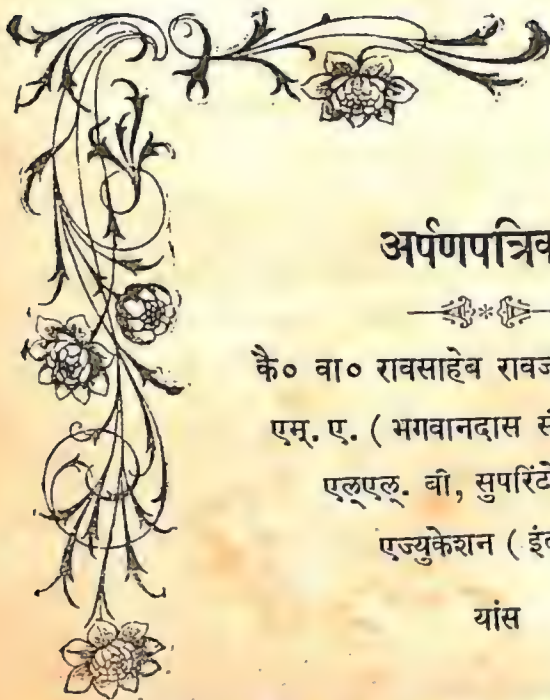 अर्पणपत्रिक
कै० वा० रावसाहेब रावज
एम्. ए. ( भगवानदास सं
एल्एल्. बी, सुपरिंटें
एज्युकेशन ( इंद
यांस